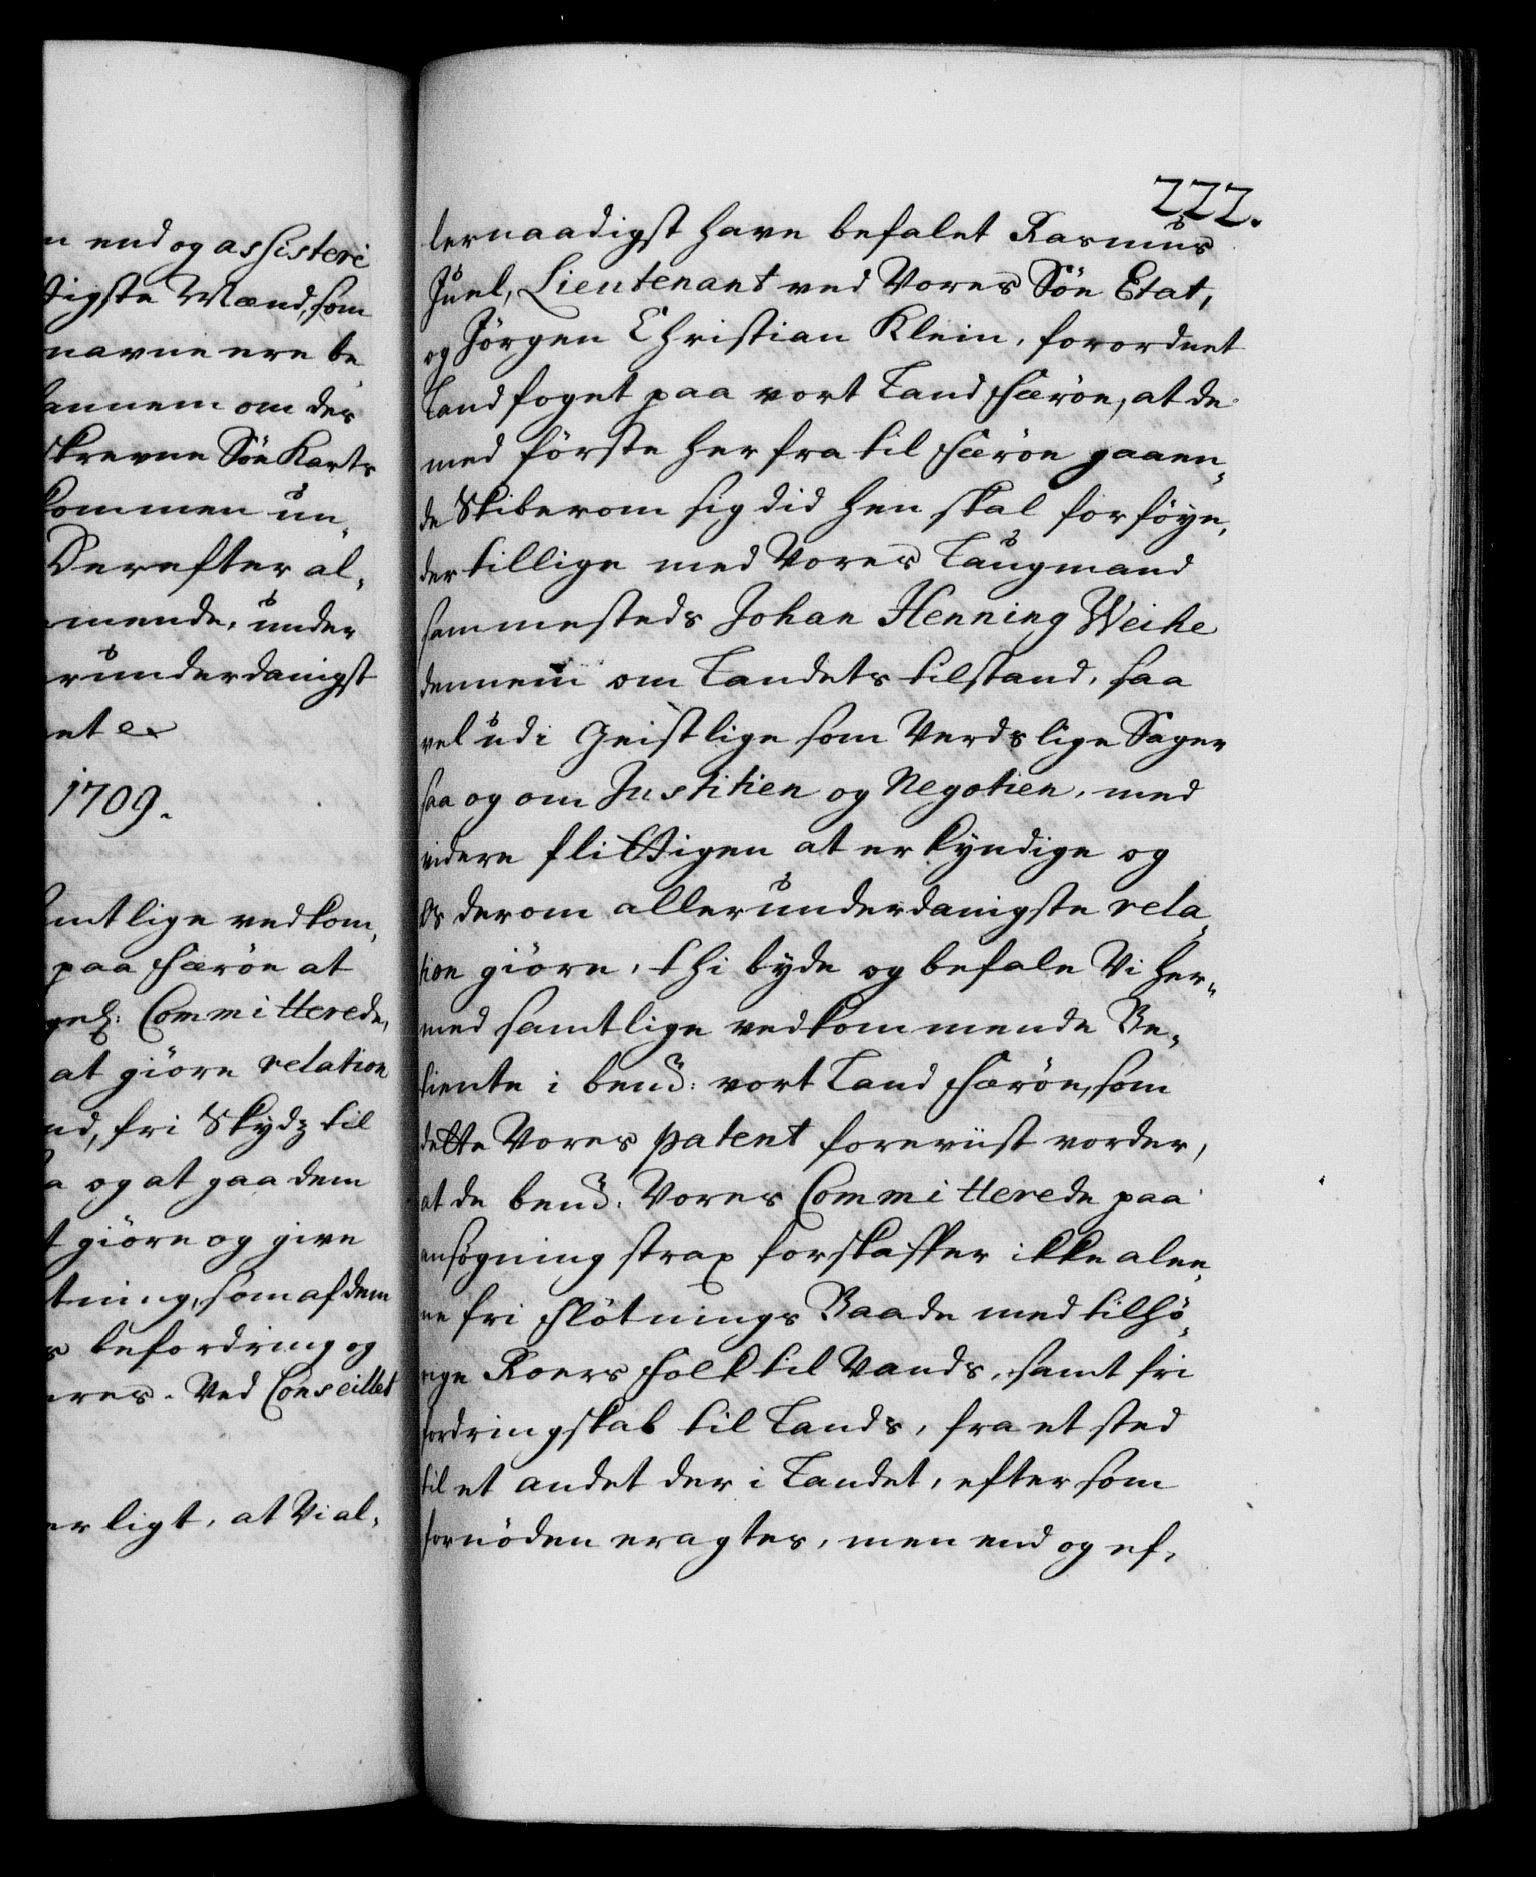 n end og assistere
tigste Mænd, som
navne ere be
annem om des
skrevne Söe Karts
kommen un¬
Derefter al¬
mende, under
runderdanigst
et &c
1709.
amtlige vedkom¬
paa Færöe at
Committerede,
at giöre relation
nd, fri Skydz til
a og at gaa dem
t giöre og give
tning, som af dem
s befordring og
eres. Ved Conseillet
erligt, at Vi al¬
222.
lernaadigst have befalet Rasmus
Juel, Lieutenant ved Vores Söe Etat,
og Jörgen Christian Klein, forordnet
Landfoget paa vort Land Færöe, at de
med förste her fra til Færöe gaaen¬
de Skiberom sig did hen skal forföye,
der tillige med Vores Laugmand
sammesteds Johan Henning Weihe
dennem om Landets tilstand, saa
vel udi Geistlige som Verdslige Sager
saa og om Justitien og Negotien, med
videre flittigen at erkyndige og
Os derom allerunderdanigste rela¬
tion giöre, thi byde og befale Vi her¬
med samtlige vedkommende Be¬
tiente i bemd: vort Land Færöe, som
dette Vores patent foreviist vorder,
at de bemd: Vores Committerede paa
ansögning strax forskaffer ikke alee¬
ne fri Flötnings Baade med tilhö¬
rige Roers Folk til Vands, samt fri
fordringskab til Lands, fra et sted
til et andet der i Landet, eftersom
fornöden eragtes, men end og ef¬